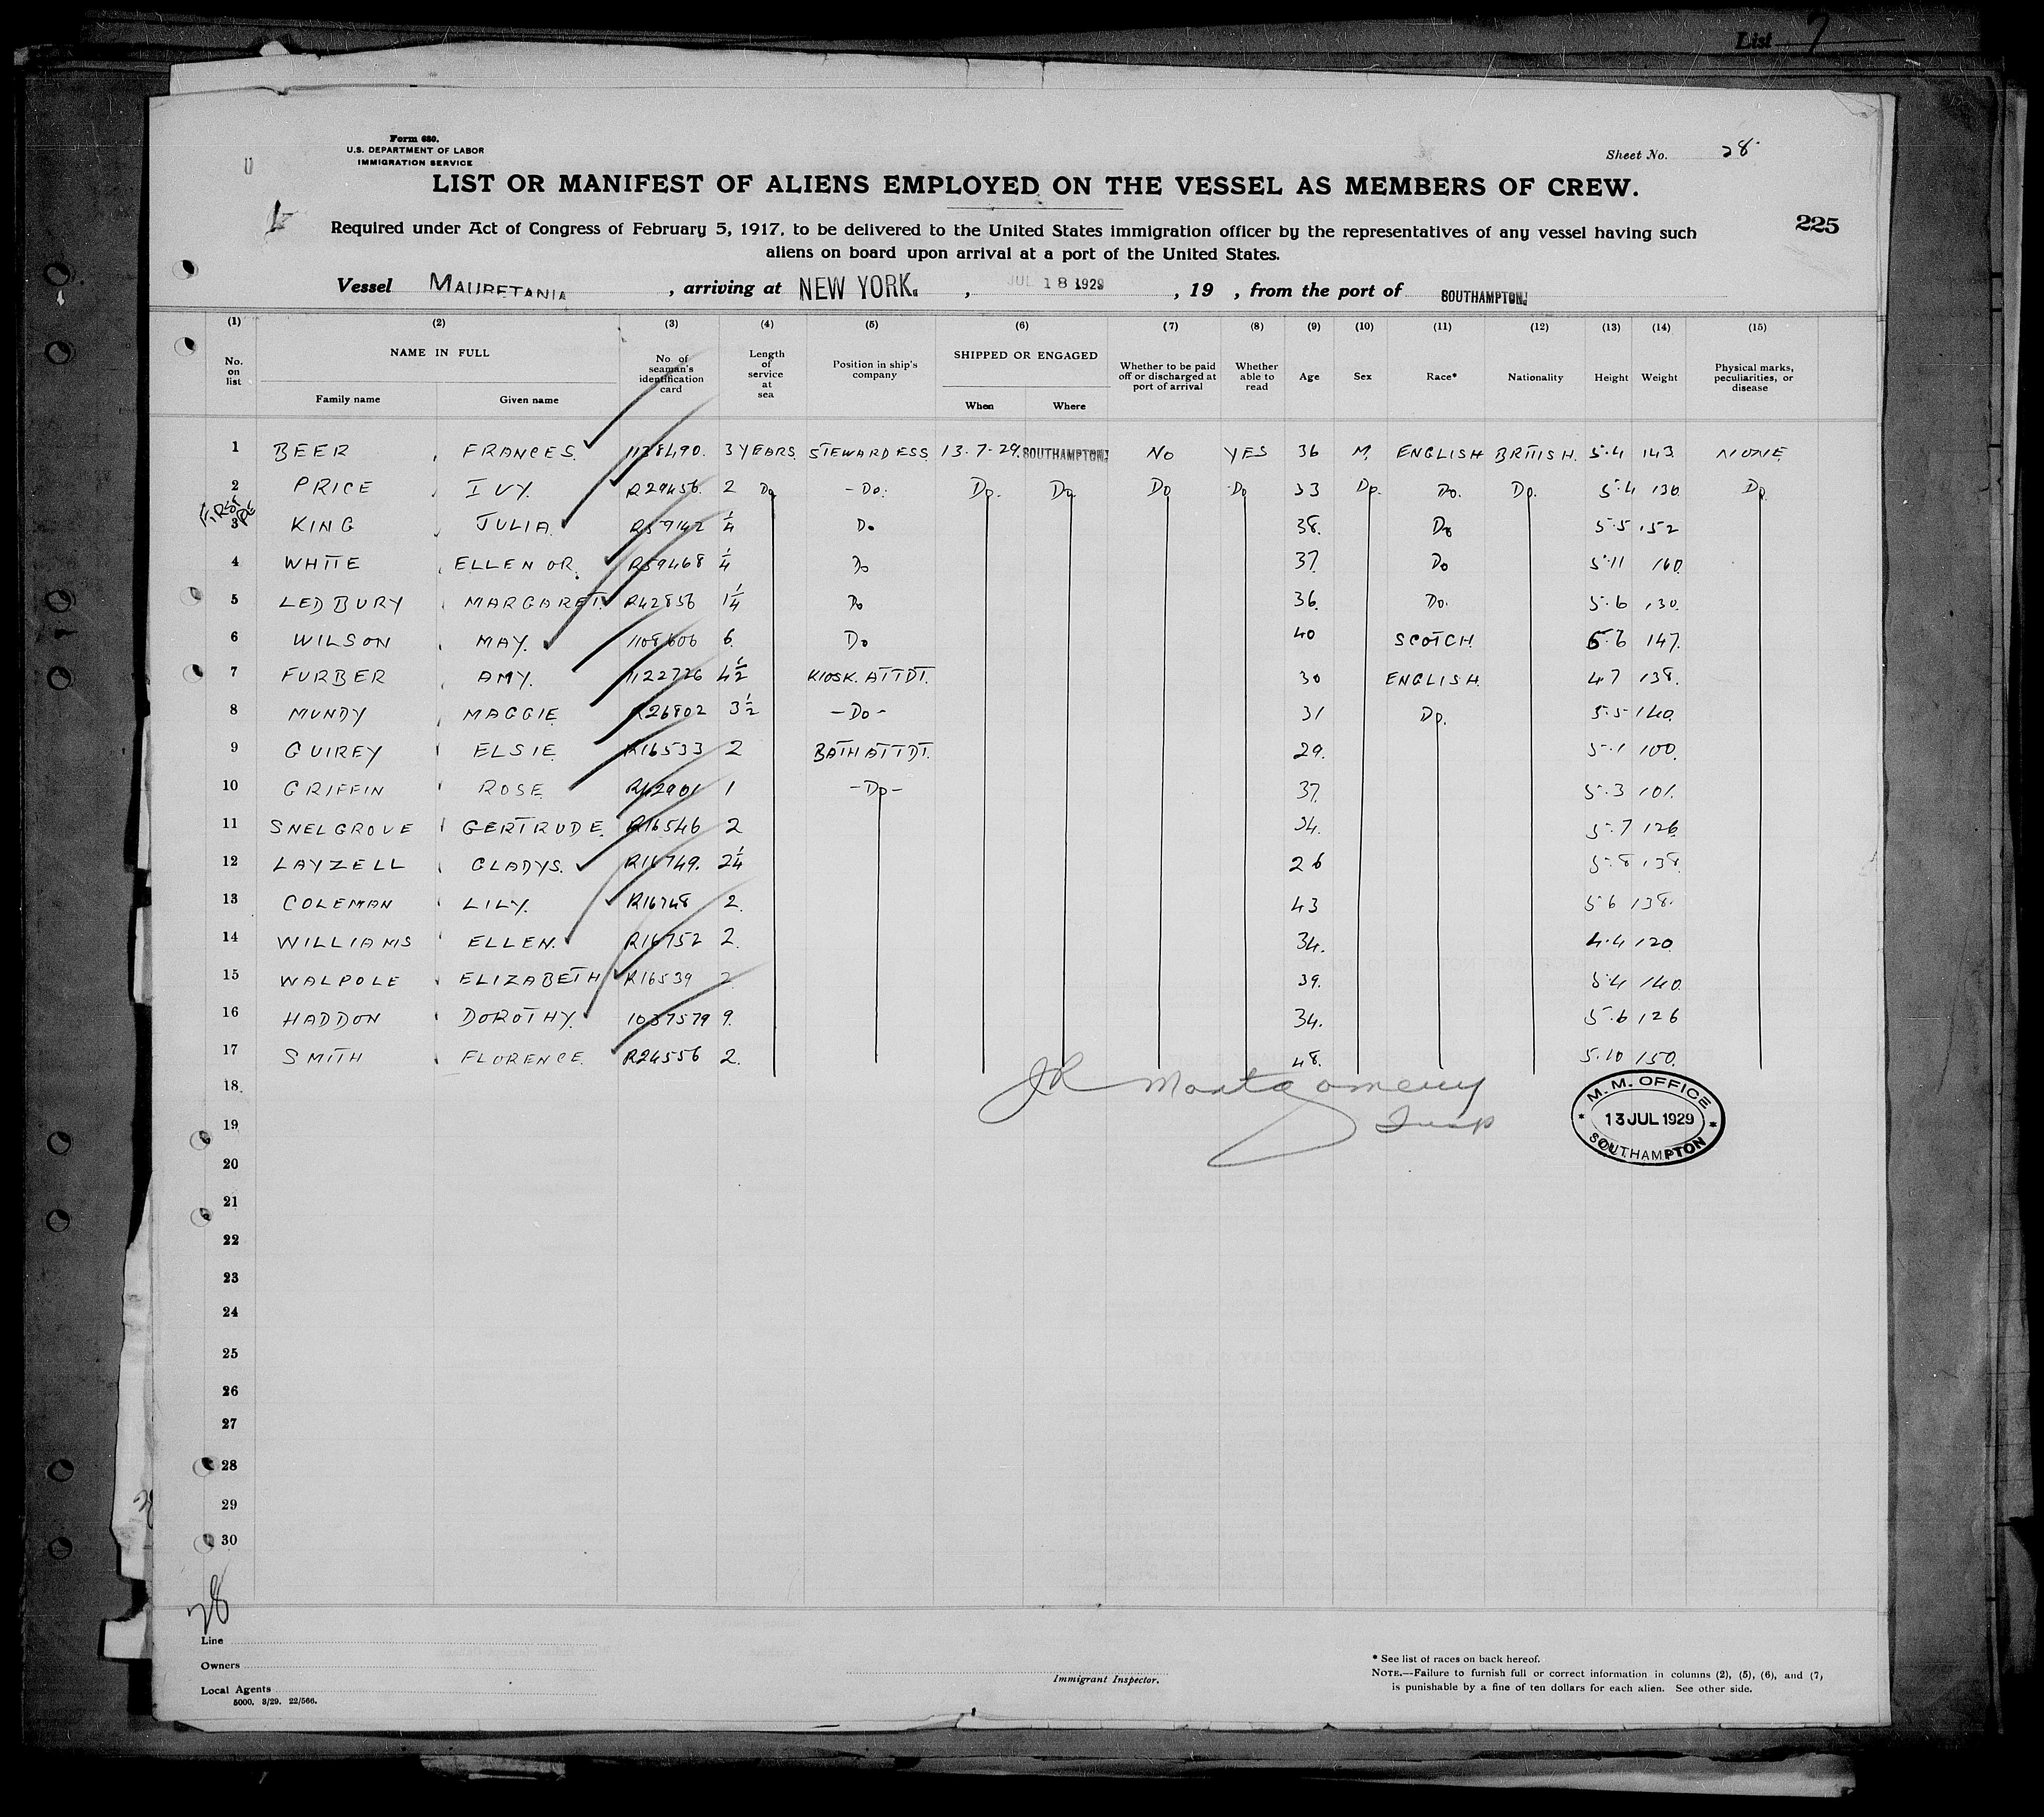 List 7
Form 680.
U.S. DEPARTMENT OF LABOR
IMMIGRATION SERVICE
Sheet No. 28
LIST OR MANIFEST OF ALIENS EMPLOYED ON THE VESSEL AS MEMBERS OF CREW.
225
Required under Act of Congress of February 5, 1917, to be delivered to the United States immigration officer by the representatives of any vessel having such
aliens on board upon arrival at a port of the United States.
Vessel MAURETANIA, arriving at NEW YORK., JUL 18 1929, 19 , from the port of SOUTHAMPTON.
(1) (2) (3) (4) (5) (6) (7) (8) (9) (10) (11) (12) (13) (14) (15)
No. on list NAME IN FULL Family name Given name No. of seaman's identification card Length of service at sea Position in ship's company SHIPPED OR ENGAGED When Where Whether to be paid off or discharged at port of arrival Whether able to read Age Sex Race* Nationality Height Weight Physical marks, peculiarities, or disease
1 BEER, FRANCES. 1138490. 3 YEARS. STEWARDESS. 13.7.29. SOUTHAMPTON. NO YES 36 M. ENGLISH BRITISH. 5.4 143. NONE
2 PRICE, IVY. R29456. 2 Do -Do. Do. Do. Do Do 33 Do. Do. Do. 5.4 130. Do.
FIRST
3 KING, JULIA. R59142 1/4 Do 38. Do 5.5 152
4 WHITE, ELLENOR. R59468 1/4 Do 37. Do 5.11 160.
5 LEDBURY, MARGARET. R42856 1 1/4 Do 36. Do. 5.6 130.
6 WILSON, MAY. 1108606 6. Do 40 SCOTCH. 5.6 147.
7 FURBER, AMY. 1122726 4 1/2 KIOSK. ATTDT. 30 ENGLISH. 4.7 138.
8 MUNDY, MAGGIE R26802 3 1/2 -Do- 31 Do. 5.5 140.
9 GUIREY, ELSIE. R16533 2 BATH ATTDT. 29. 5.1 100.
10 GRIFFIN, ROSE. R42901 1 -Do- 37. 5.3 101.
11 SNELGROVE, GERTRUDE. R16546 2 34. 5.7 126.
12 LAYZELL, GLADYS. R16749. 2 1/4 26 5.8 138.
13 COLEMAN, LILY. R16748 2. 43 5.6 138.
14 WILLIAMS, ELLEN. R16752 2. 34. 4.4 120
15 WALPOLE, ELIZABETH R16539 2. 39. 5.4 140.
16 HADDON, DOROTHY. 1037579 9. 34. 5.6 126
17 SMITH, FLORENCE. R24556 2. 48. 5.10 150.
18
JR Montgomery
19
M. M. OFFICE
13 JUL 1929
SOUTHAMPTON
20
21
22
23
24
25
26
27
28
29
30
28
Line
Owners
Local Agents
5000. 3/29. 22/566.
Immigrant Inspector.
* See list of races on back hereof.
NOTE.—Failure to furnish full or correct information in columns (2), (5), (6), and (7)
is punishable by a fine of ten dollars for each alien. See other side.